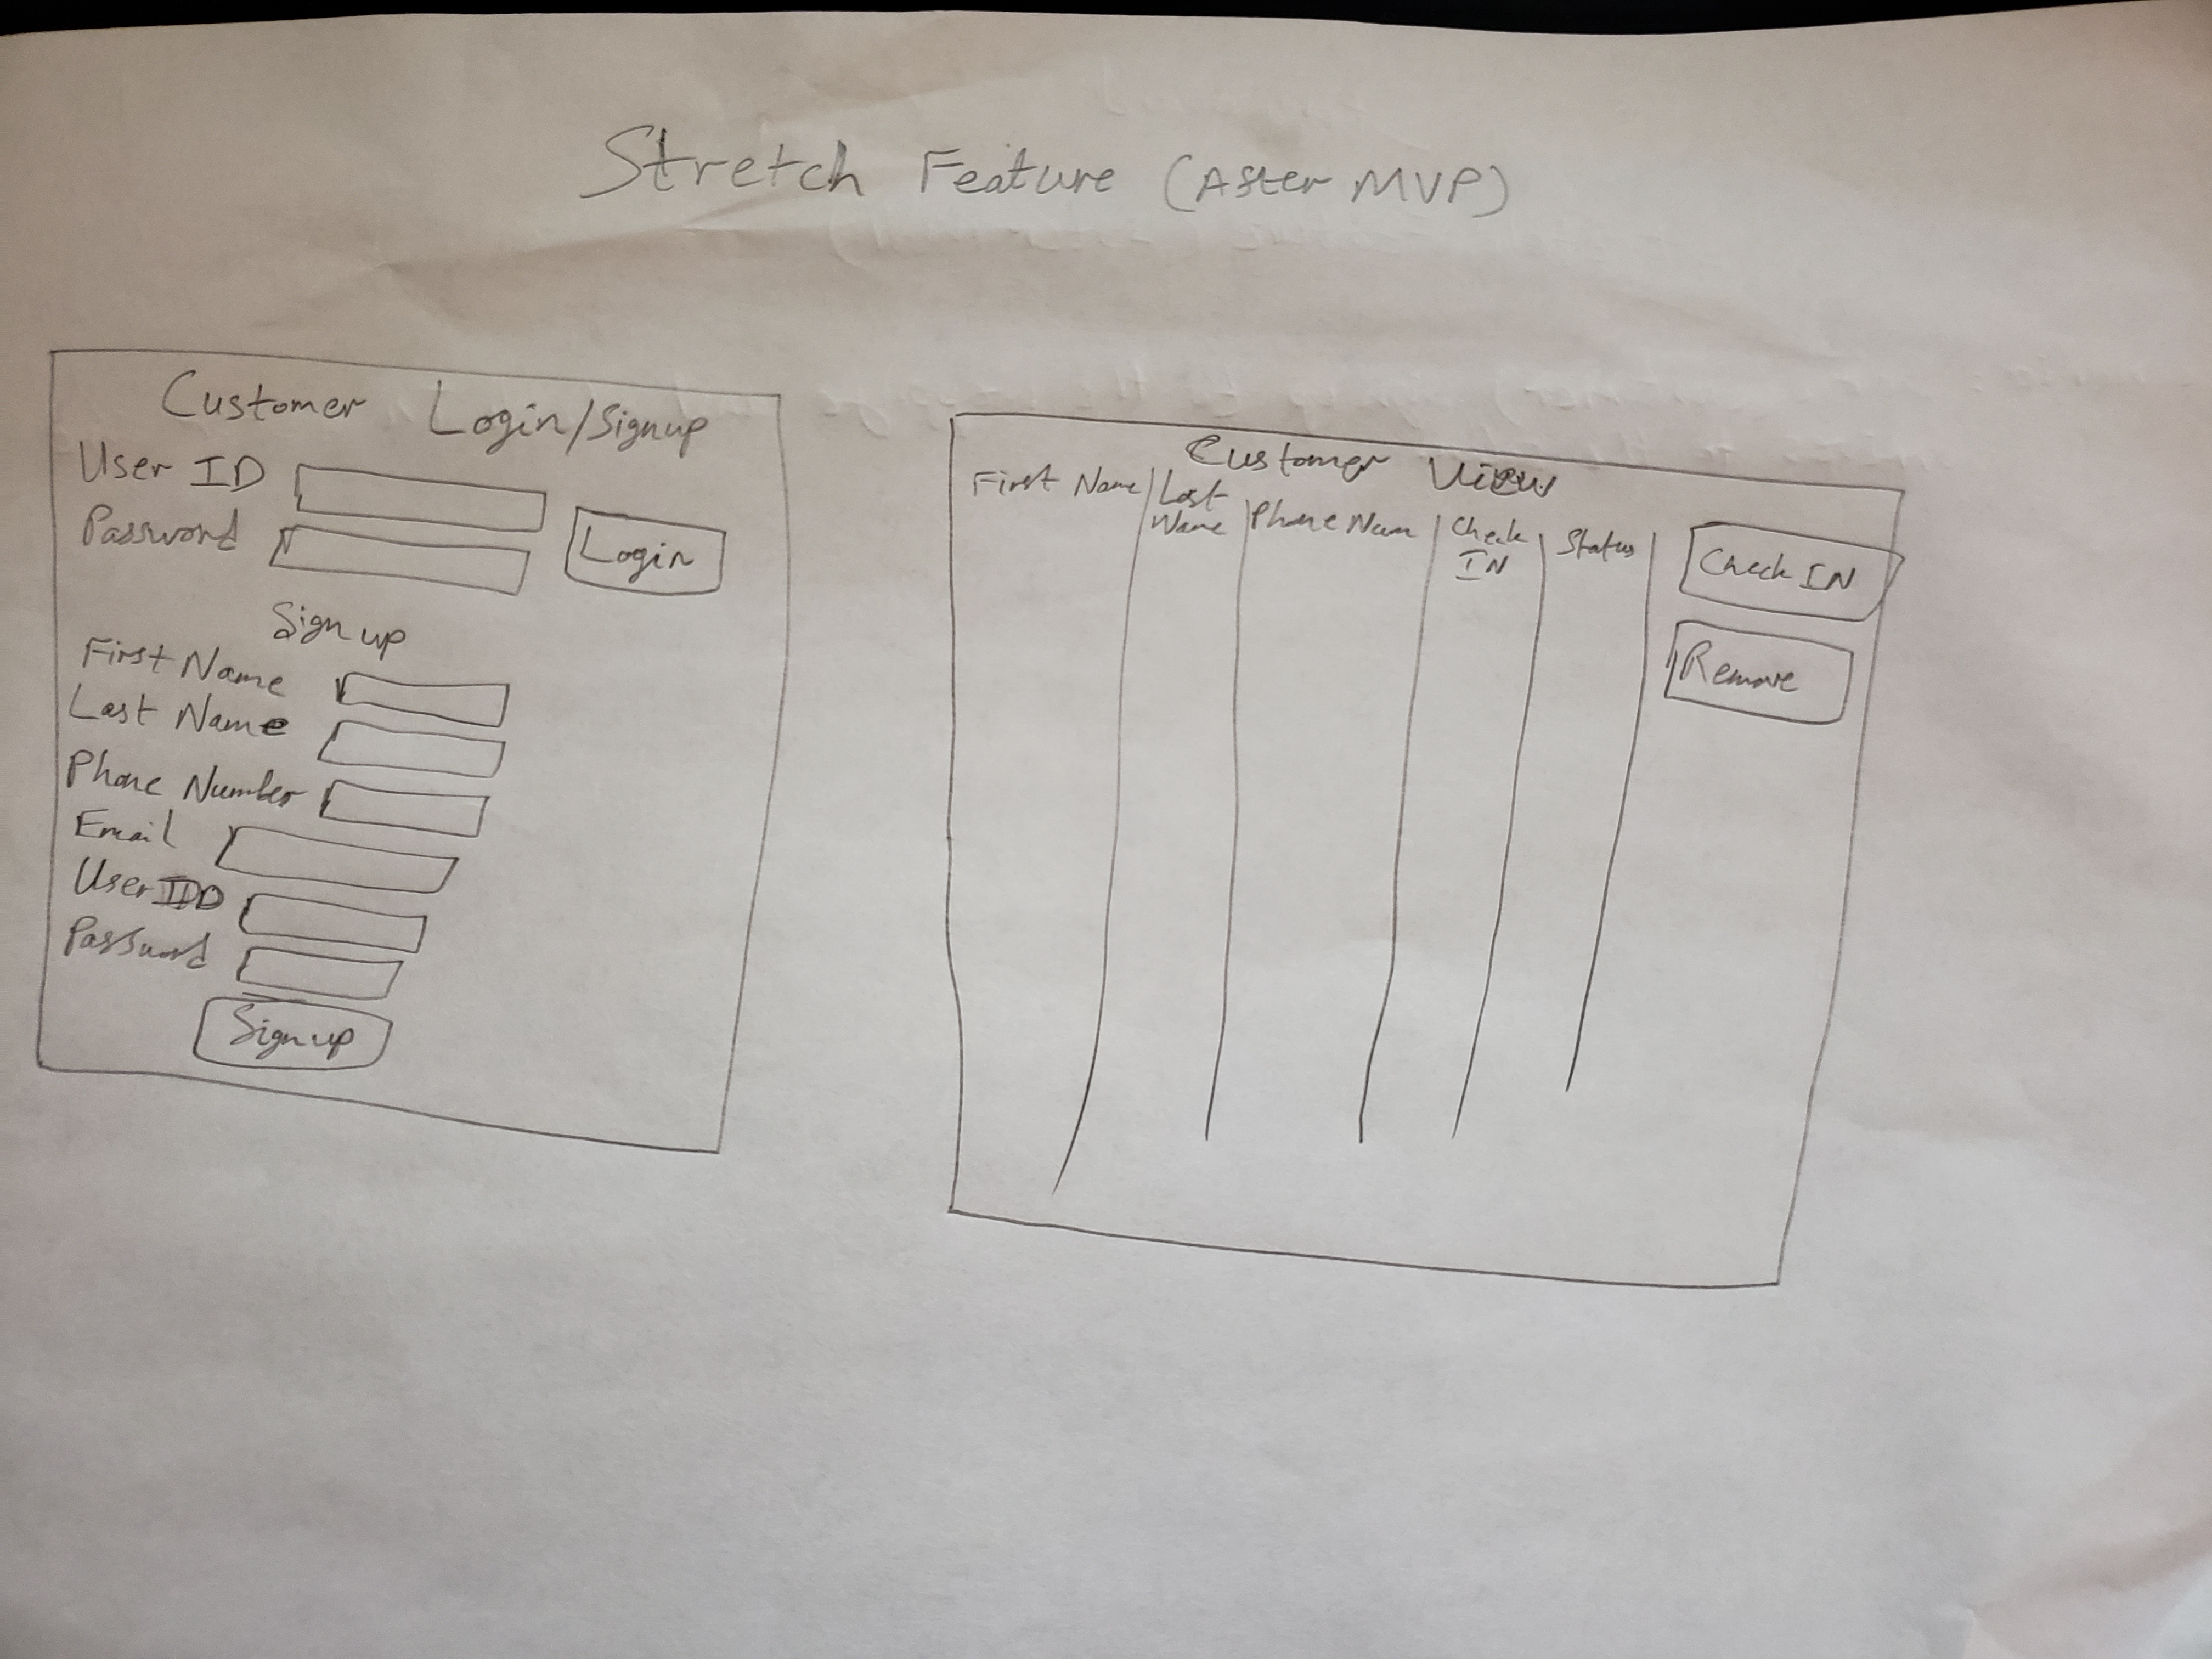 Stretch Feature (After MVP)
Customer Login/Signup
User ID
Password
Login
Sign up
First Name
Last Name
Phone Number
Email
User ID
Password
Sign up
Customer View
First Name | Last Name | Phone Num | Check IN | Status |
Check IN
Remove